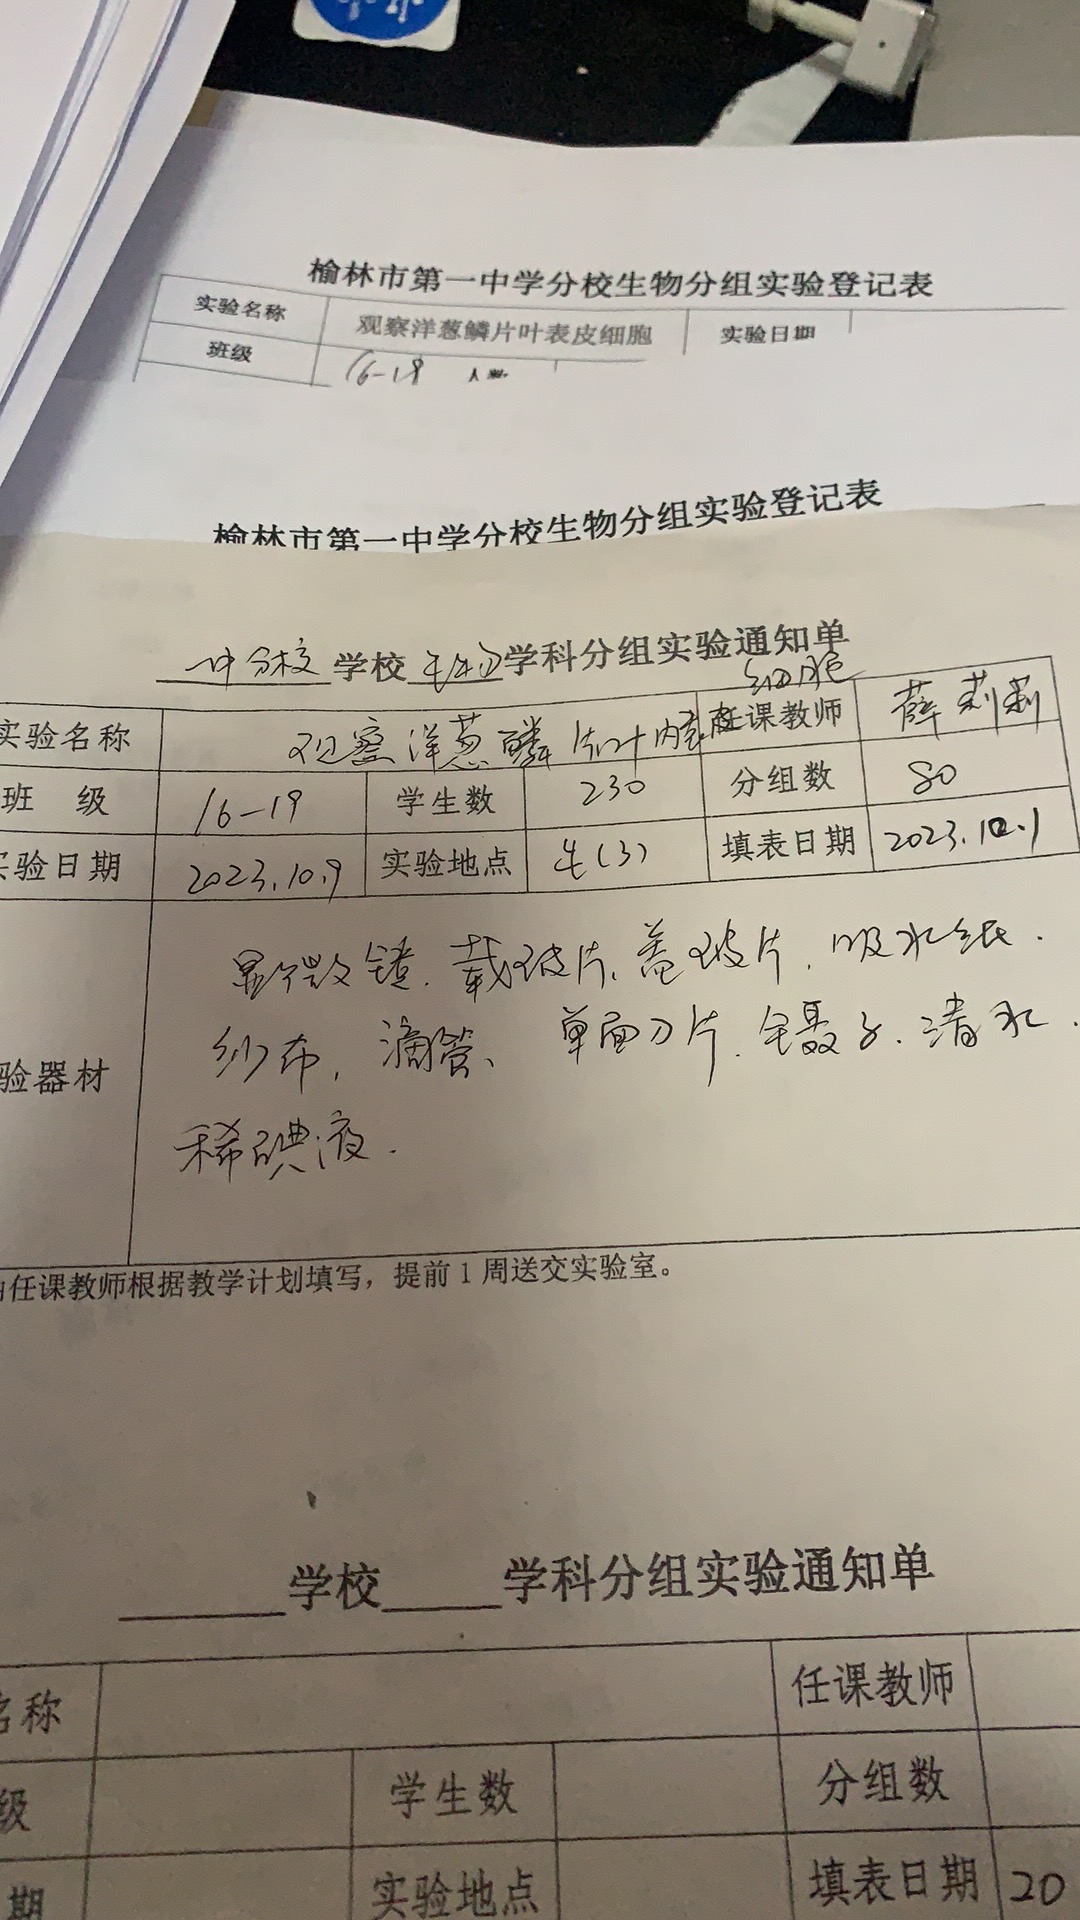 榆林市第一中学分校生物分组实验登记表
实验名称 观察洋葱鳞片叶表皮细胞 实验日期
班级 16-19 人数
榆林市第一中学分校生物分组实验登记表
一中分校学校生物学科分组实验通知单
细胞
实验名称 观察洋葱鳞片叶内表皮 任课教师 薛莉莉
班 级 16-19 学生数 230 分组数 80
实验日期 2023.10.9 实验地点 生(3) 填表日期 2023.10.1
显微镜、载玻片、盖玻片、吸水纸、
验器材 纱布、滴管、单面刀片、镊子、清水、
稀碘液.
由任课教师根据教学计划填写，提前1周送交实验室。
学校 学科分组实验通知单
名称 任课教师
级 学生数 分组数
期 实验地点 填表日期 20